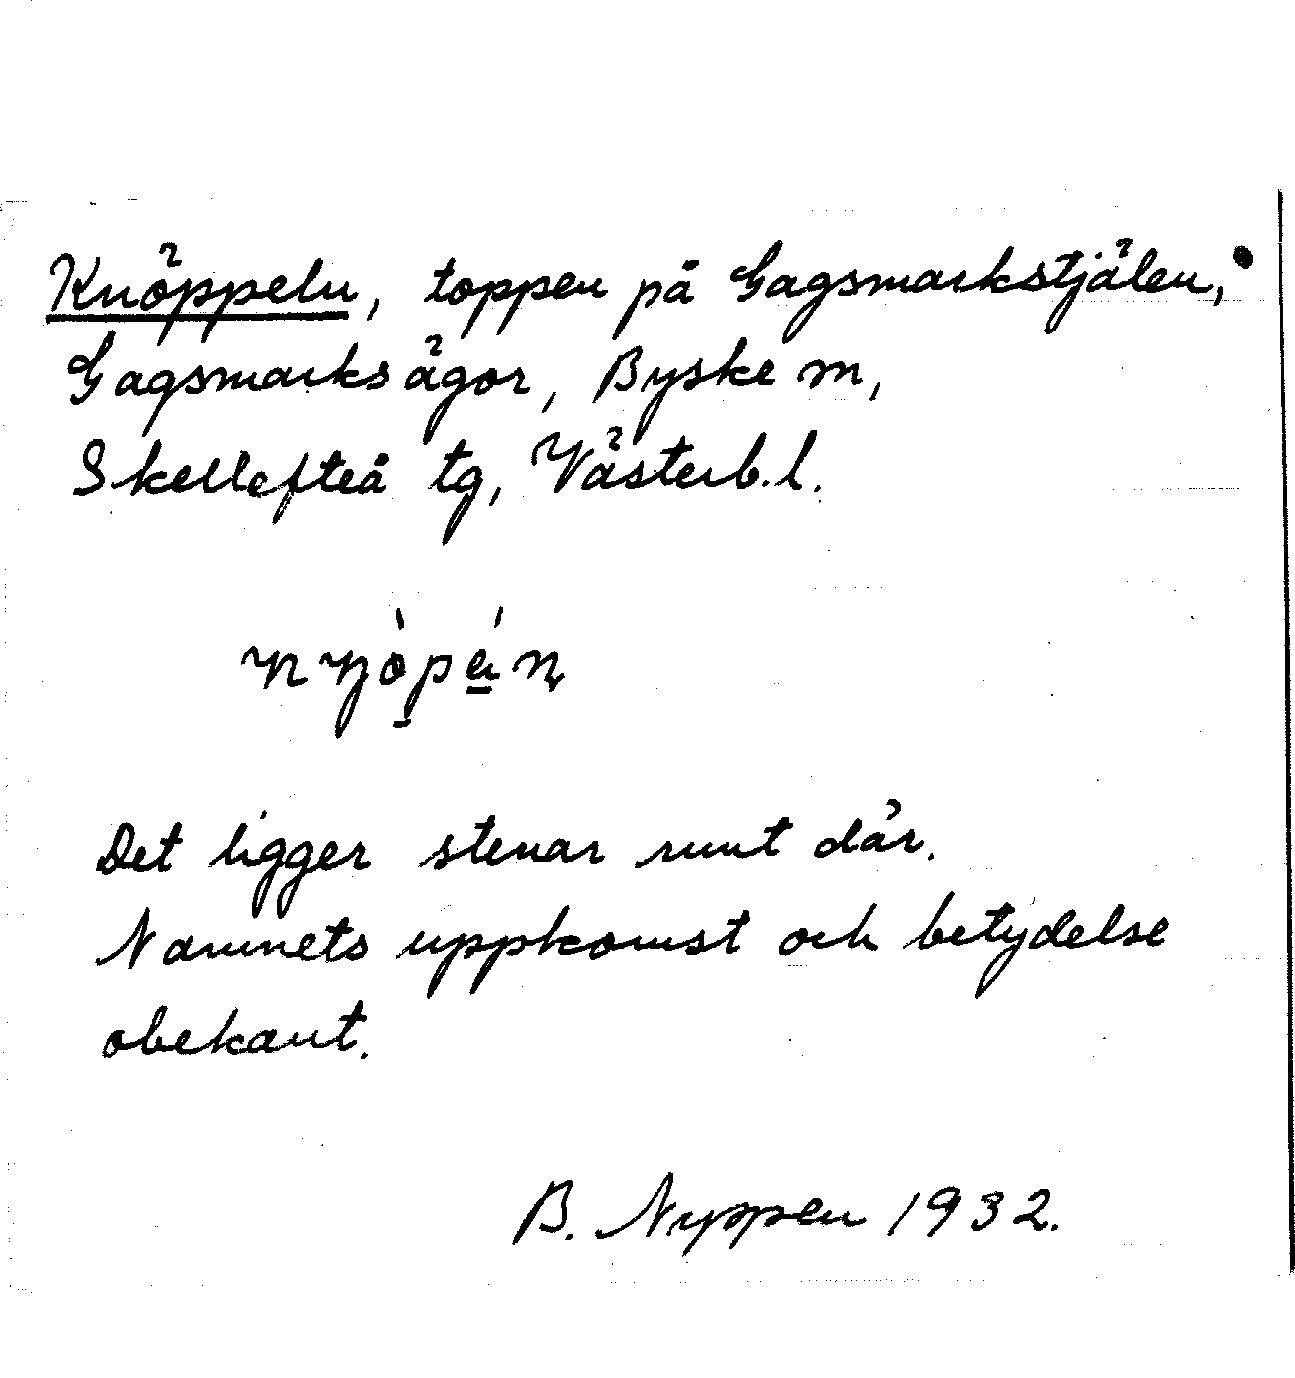 Knöppeln, toppen på Gagsmarkstjälen,
Gagsmarksägor, Byske m,
Skellefteå tg, Västerb.l.
Det ligger stenar runt där.
Namnets uppkomst och betydelse
obekant.
B. Nyppen 1932.